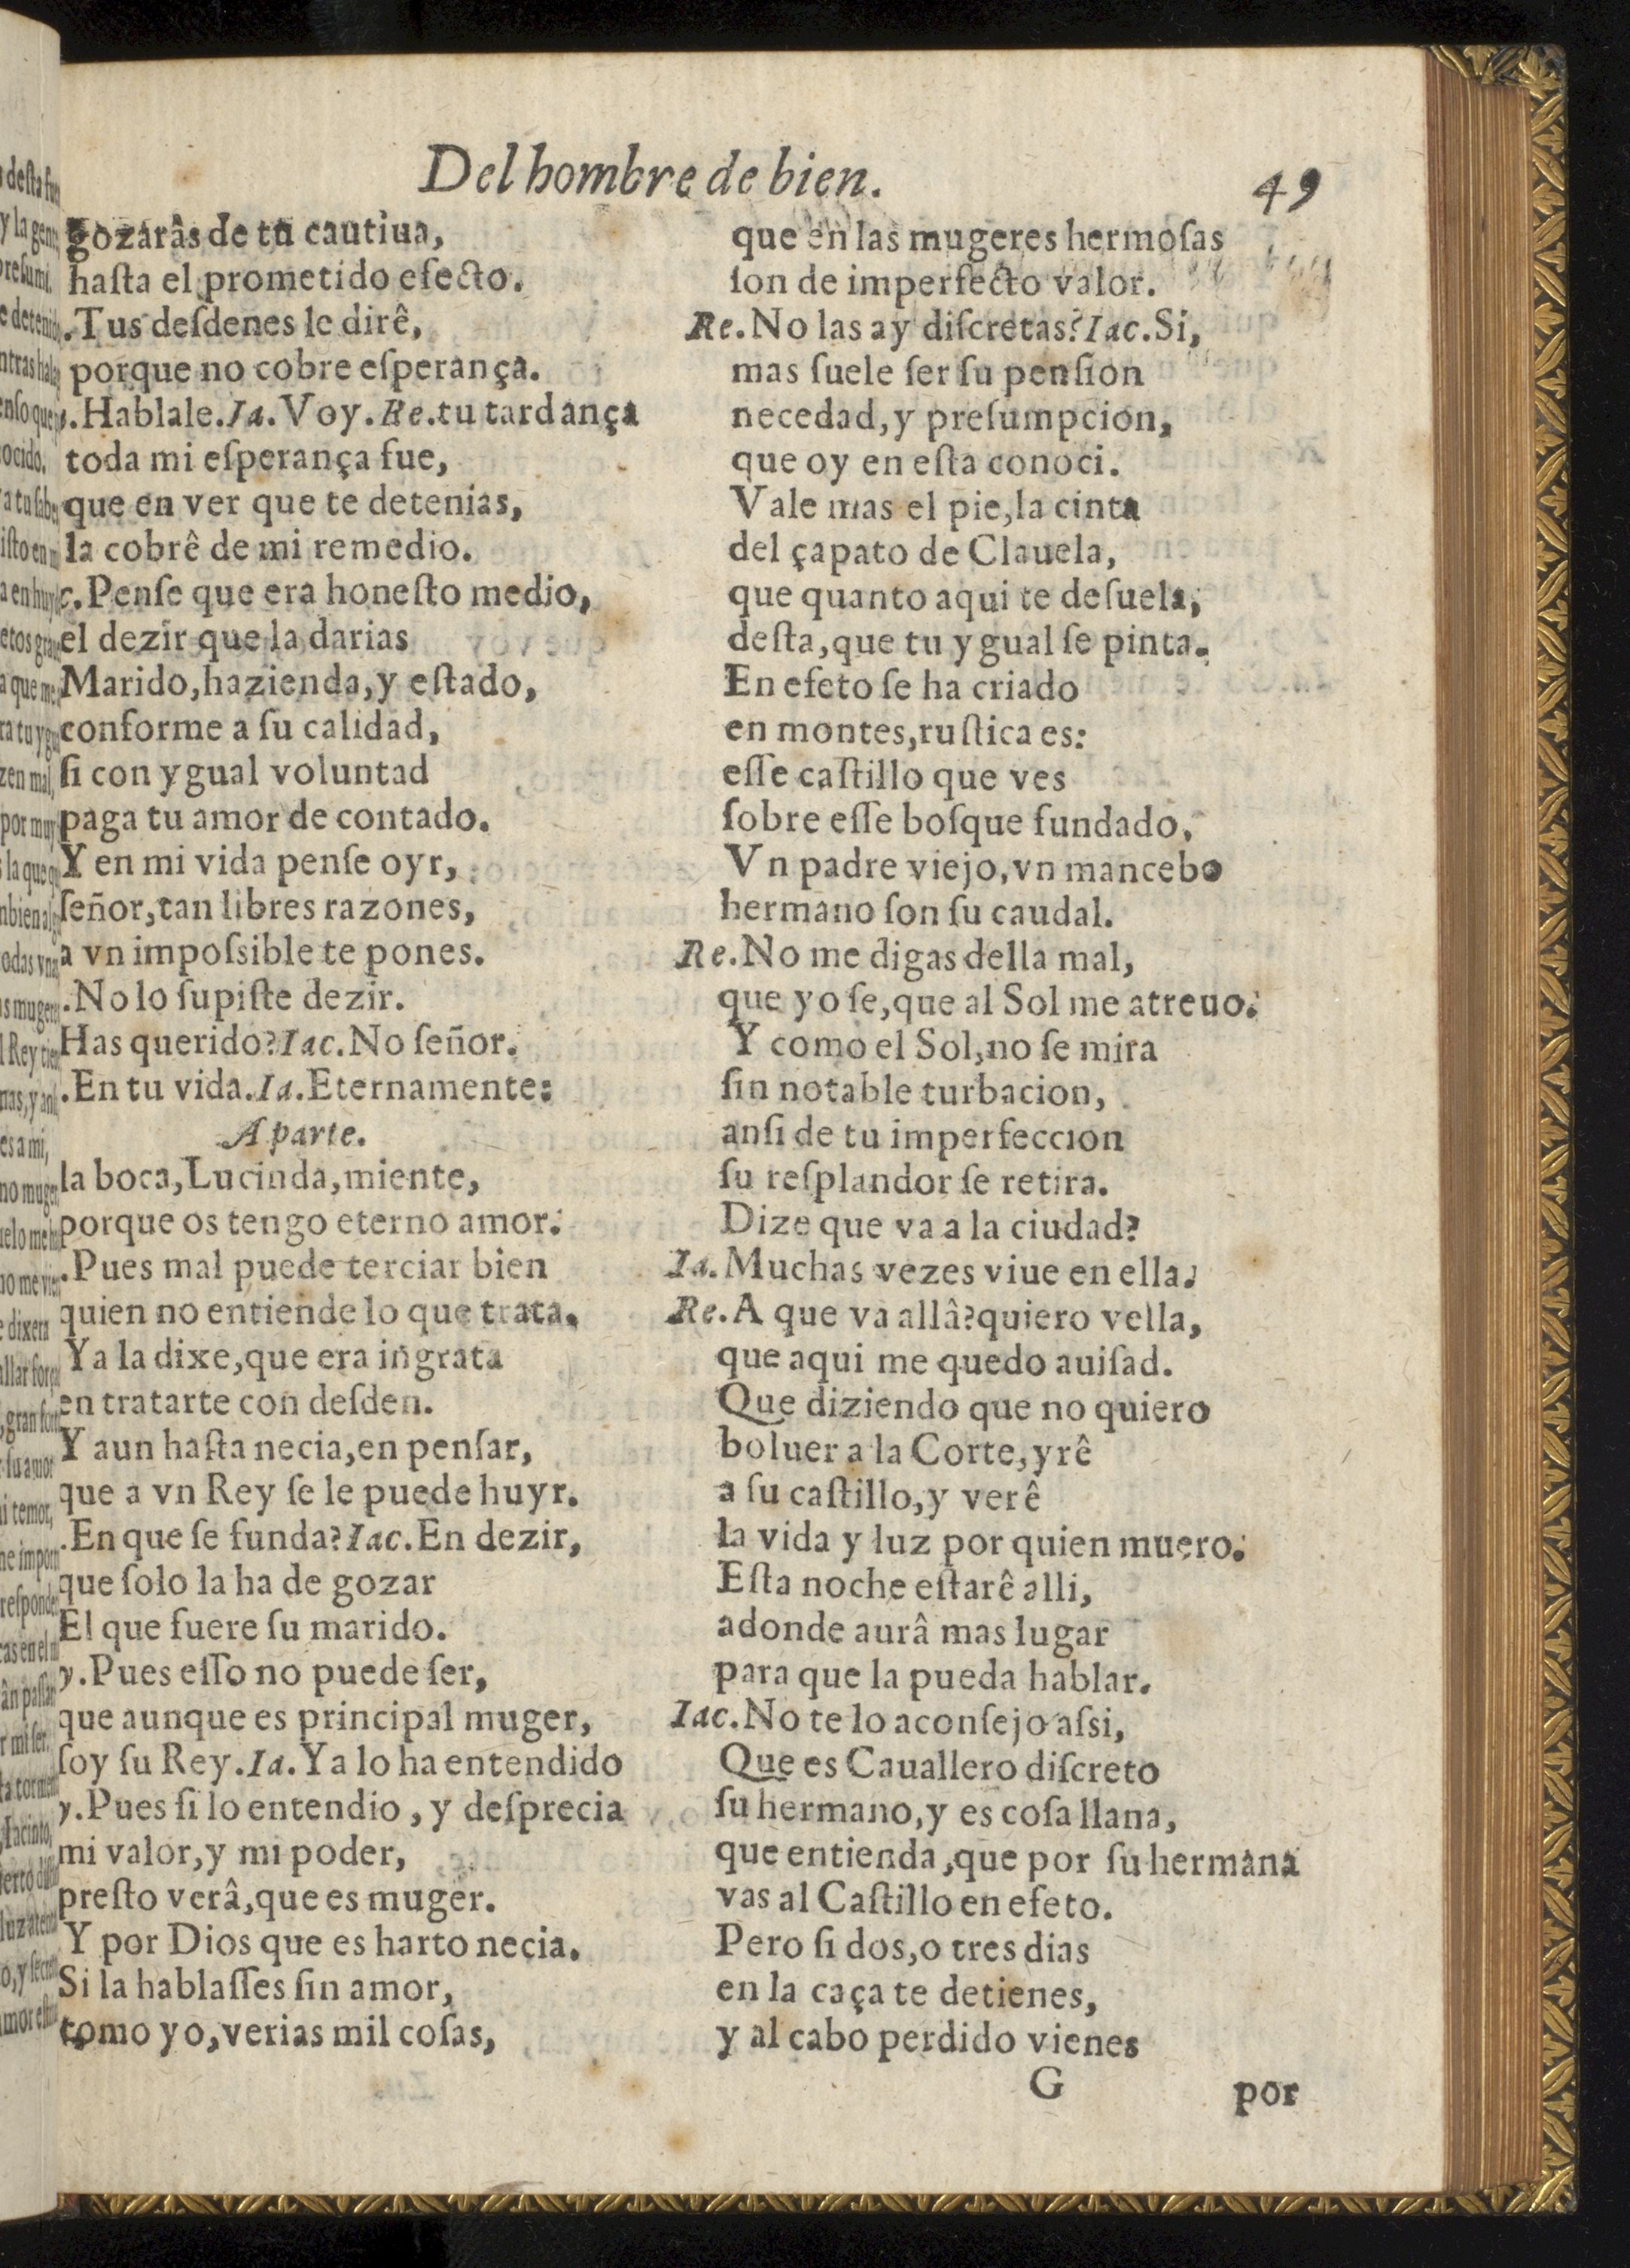 Del hombre de bien.
49
gozarâs de tu cautiua,
hasta el prometido efecto.
.Tus deſdenes le dirê,
porque no cobre eſperança.
.Hablale.Ia.Voy.Re.tu tardança
toda mi eſperança fue,
que en ver que te detenias,
la cobrê de mi remedio.
c.Penſe que era honeſto medio,
el dezir que la darias
Marido,hazienda,y eſtado,
conforme a ſu calidad,
ſi con ygual voluntad
paga tu amor de contado.
Y en mi vida penſe oyr,
ſeñor,tan libres razones,
a vn impoſsible te pones.
.No lo ſupiſte dezir.
Has querido?Iac.No ſeñor.
.En tu vida.Ia.Eternamente:
Aparte.
la boca,Lucinda,miente,
porque os tengo eterno amor.
.Pues mal puede terciar bien
quien no entiende lo que trata.
Ya la dixe,que era ingrata
en tratarte con deſden.
Y aun haſta necia,en penſar,
que a vn Rey ſe le puede huyr.
.En que ſe funda?Iac.En dezir,
que ſolo la ha de gozar
El que fuere ſu marido.
y.Pues eſſo no puede ſer,
que aunque es principal muger,
ſoy ſu Rey.Ia.Ya lo ha entendido
y.Pues ſi lo entendio, y deſprecia
mi valor,y mi poder,
preſto verâ,que es muger.
Y por Dios que es harto necia.
Si la hablaſſes ſin amor,
como yo,verias mil coſas,
que en las mugeres hermoſas
ſon de imperfecto valor.
Re.No las ay diſcretas?Iac.Si,
mas ſuele ſer ſu penſion
necedad,y preſumpcion,
que oy en eſta conoci.
Vale mas el pie,la cinta
del çapato de Clauela,
que quanto aqui te deſuela,
deſta,que tu ygual ſe pinta.
En efeto ſe ha criado
en montes,ruſtica es:
eſſe caſtillo que ves
ſobre eſſe boſque fundado,
Vn padre viejo,vn mancebo
hermano ſon ſu caudal.
Re.No me digas della mal,
que yo ſe,que al Sol me atreuo.
Y como el Sol,no ſe mira
ſin notable turbacion,
anſi de tu imperfeccion
ſu reſplandor ſe retira.
Dize que va a la ciudad?
Ia.Muchas vezes viue en ella.
Re.A que va allâ?quiero vella,
que aqui me quedo auiſad.
Que diziendo que no quiero
boluer a la Corte,yrê
a ſu caſtillo,y verê
la vida y luz por quien muero.
Eſta noche eſtarê alli,
adonde aurâ mas lugar
para que la pueda hablar.
Iac.No te lo aconſejo aſsi,
Que es Cauallero diſcreto
ſu hermano,y es coſa llana,
que entienda,que por ſu hermana
vas al Caſtillo en efeto.
Pero ſi dos,o tres dias
en la caça te detienes,
y al cabo perdido vienes
G
por